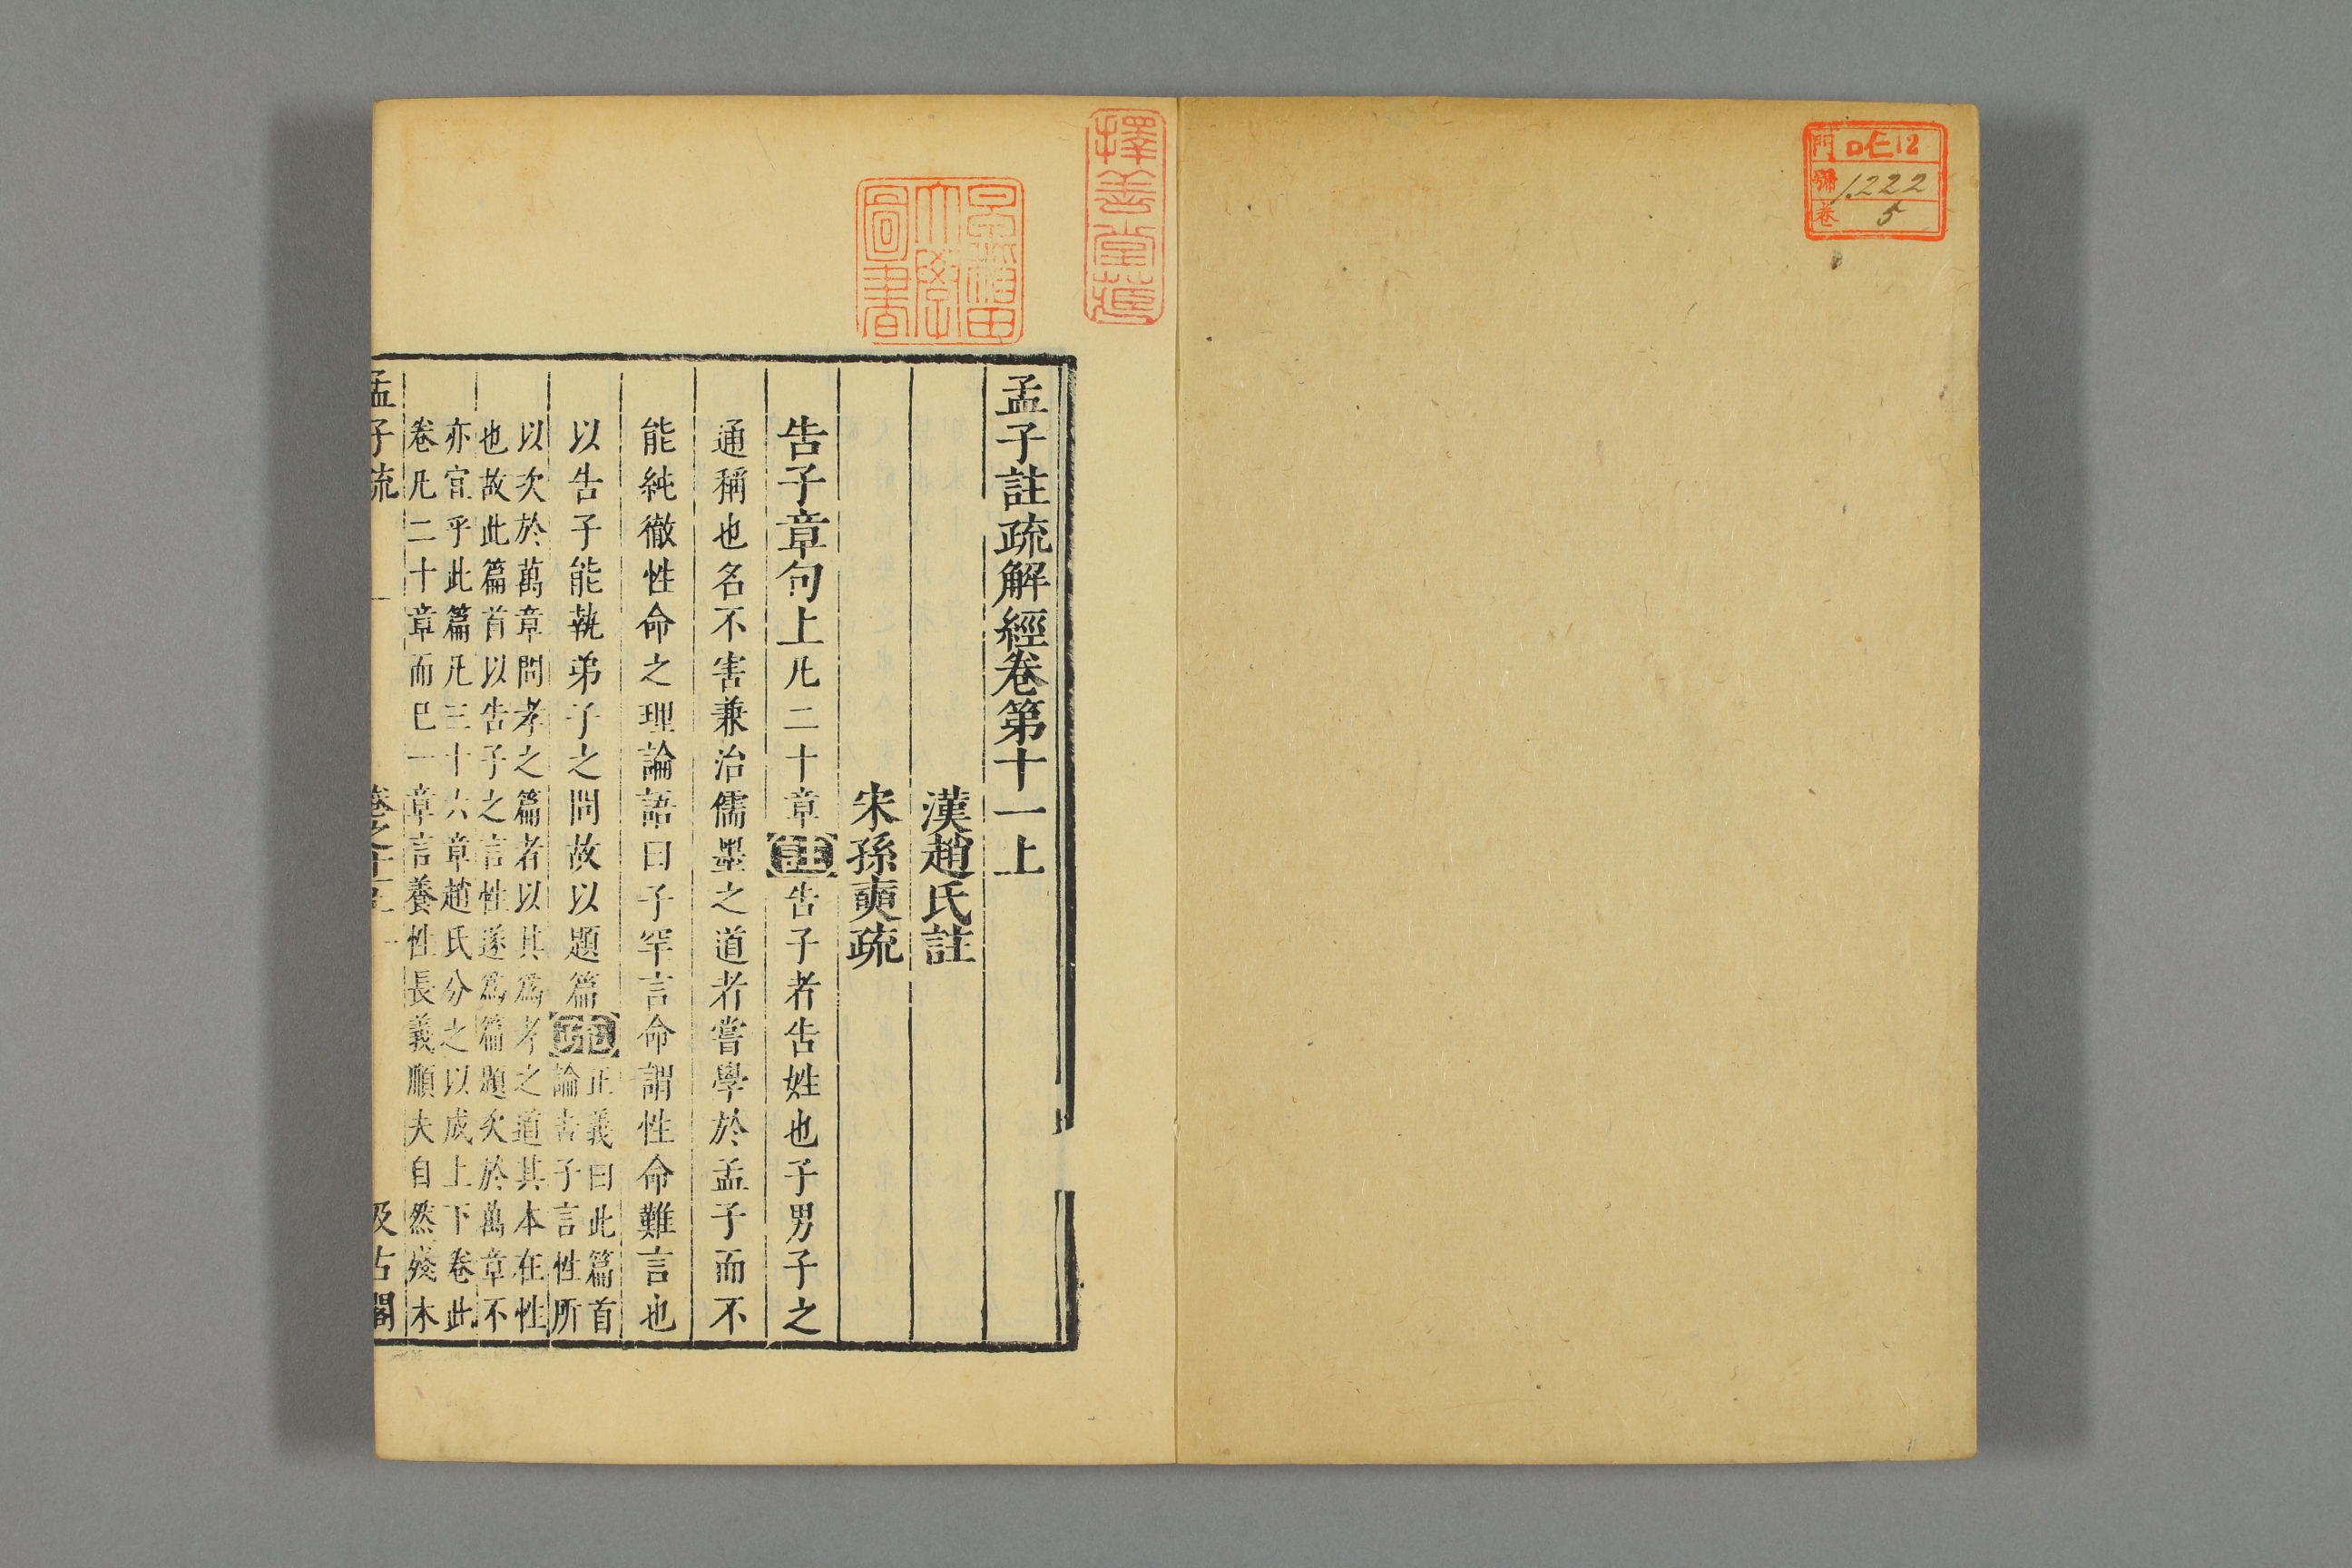 門 ロ仁12
號 1222
卷 5
擇善堂藏
早稲田
大學
圖書
孟子註疏解經卷第十一上
漢趙氏註
宋孫奭疏
告子章句上凡二十章註告子者告姓也子男子之
通稱也名不害兼治儒墨之道者嘗學於孟子而不
能純徹性命之理論語曰子罕言命謂性命難言也
以告子能執弟子之問故以題篇疏正義曰此篇首
論告子言性所
以次於萬章問孝之篇者以其爲孝之道其本在性
也故此篇首以告子之言性遂爲篇題次於萬章不
亦宜乎此篇凡三十六章趙氏分之以成上下卷此
卷凡二十章而已一章言養性長義順夫自然殘木
孟子疏 卷之十一上 一 汲古閣